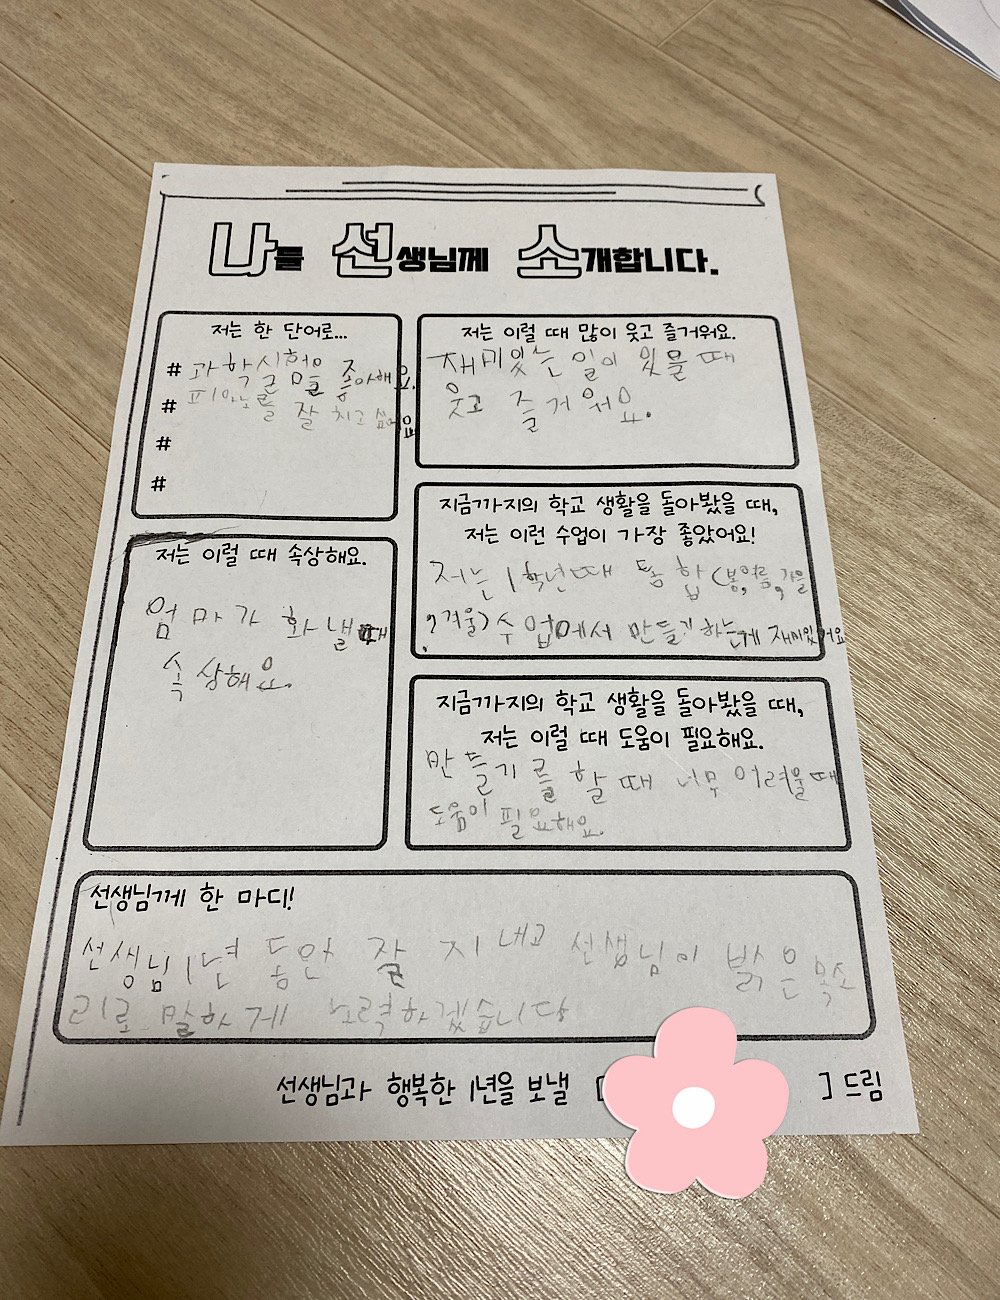 나를 선생님께 소개합니다.
저는 한 단어로...
# 과학시험을 좋아해요.
# 피아노를 잘 치고 싶어요
#
#
저는 이럴 때 많이 웃고 즐거워요.
재미있는 일이 있을 때
웃고 즐거워요.
저는 이럴 때 속상해요.
엄마가 화낼 때
속상해요.
지금까지의 학교 생활을 돌아봤을 때,
저는 이런 수업이 가장 좋았어요!
저는 1학년때 통합(봄,여름,가을
,겨울)수업에서 만들기하는게 재미있어요
지금까지의 학교 생활을 돌아봤을 때,
저는 이럴 때 도움이 필요해요.
만들기를 할 때 너무 어려울때
도움이 필요해요.
선생님께 한 마디!
선생님 1년 동안 잘 지내고 선생님이 밝은 목소
리로 말하게 노력하겠습니다
선생님과 행복한 1년을 보낼 [ ] 드림